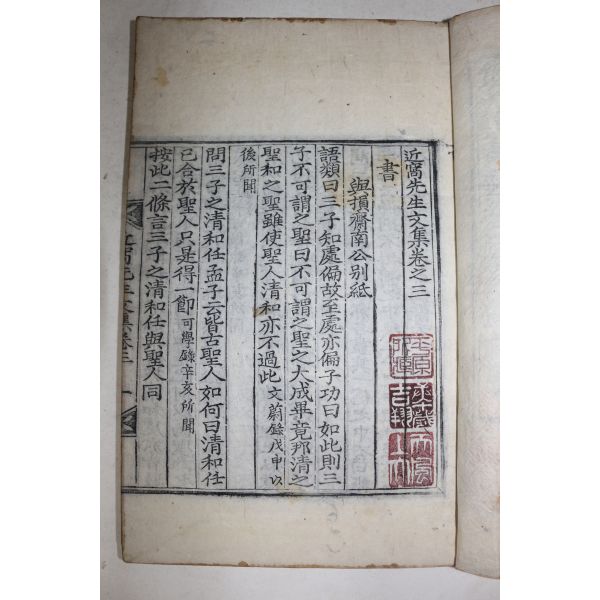 近窩先生文集卷之三
書
與損齋南公別紙
語類曰三子知處偏故至處亦偏子功曰如此則三
子不可謂之聖曰不可謂之聖之大成畢竟那清之
聖和之聖雖使聖人清和亦不過此文蔚錄戊申以
後所聞
問三子之清和任孟子云皆古聖人如何曰清和任
已合於聖人只是得一節可學錄辛亥所聞
按此二條言三子之清和任與聖人同
近窩先生文集卷三 一